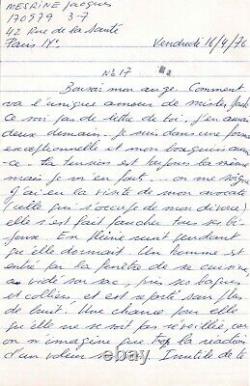 MESRINE Jacques
170979 3-7
42 Rue de la Santé
Paris 14°. Vendredi 16/4/76
No 17
Bonsoir mon ange. Comment
va l'unique amour de mister
ce soir pas de lettre de toi. J'en aurai
deux demain. Je suis dans une forme
exceptionnelle et mon bouquin avan-
-ce. La tension est toujours la même
mais je m'en fout. on me soigne
J'ai eu la visite de mon avocate
(celle qui s'occupe de mon divorce)
elle s'est fait faucher tous ses bi-
joux. En pleine nuit pendant
qu'elle dormait. Un homme est
entré par la fenêtre de sa cuisine
a vidé son sac, pris ses bagues
et colliers et est reparti sans plus
de bruit. Une chance pour elle
qu'elle ne se soit pas réveillée, car
on n'imagine que trop la réaction
d'un voleur Inutile de te